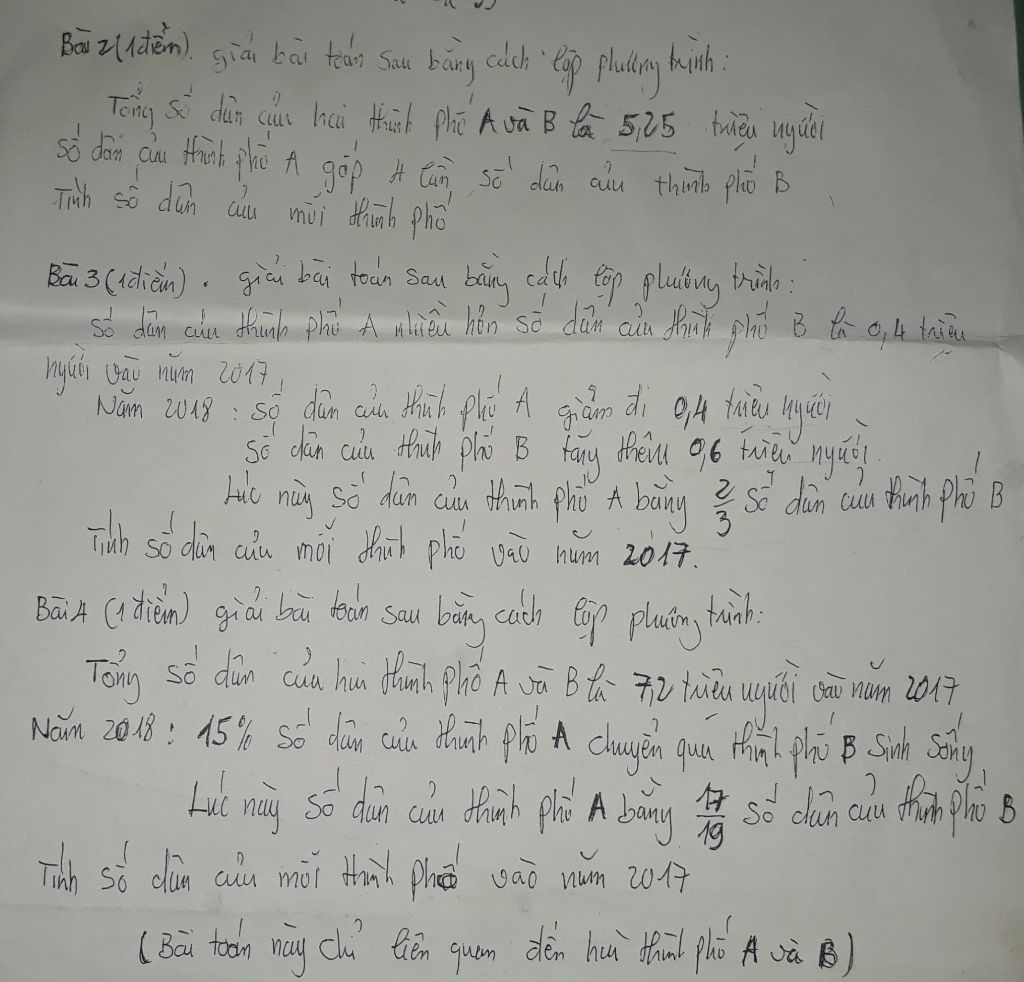 Bài 2 (1 điểm). giải bài toán sau bằng cách lập phương trình:
Tổng số dân của hai thành phố A và B là 5,25 triệu người
Số dân của thành phố A gấp 4 lần số dân của thành phố B
Tính số dân của mỗi thành phố
Bài 3 (1 điểm). giải bài toán sau bằng cách lập phương trình:
Số dân của thành phố A nhiều hơn số dân của thành phố B là 0,4 triệu
người vào năm 2017
Năm 2018: số dân của thành phố A giảm đi 0,4 triệu người
Số dân của thành phố B tăng thêm 0,6 triệu người.
Lúc này số dân của thành phố A bằng 2/3 số dân của thành phố B
Tính số dân của mỗi thành phố vào năm 2017.
Bài 4 (1 điểm) giải bài toán sau bằng cách lập phương trình:
Tổng số dân của hai thành phố A và B là 7,2 triệu người vào năm 2017
Năm 2018: 15% số dân của thành phố A chuyển qua thành phố B sinh sống
Lúc này số dân của thành phố A bằng 17/19 số dân của thành phố B
Tính số dân của mỗi thành phố vào năm 2017
(Bài toán này chỉ liên quan đến hai thành phố A và B)